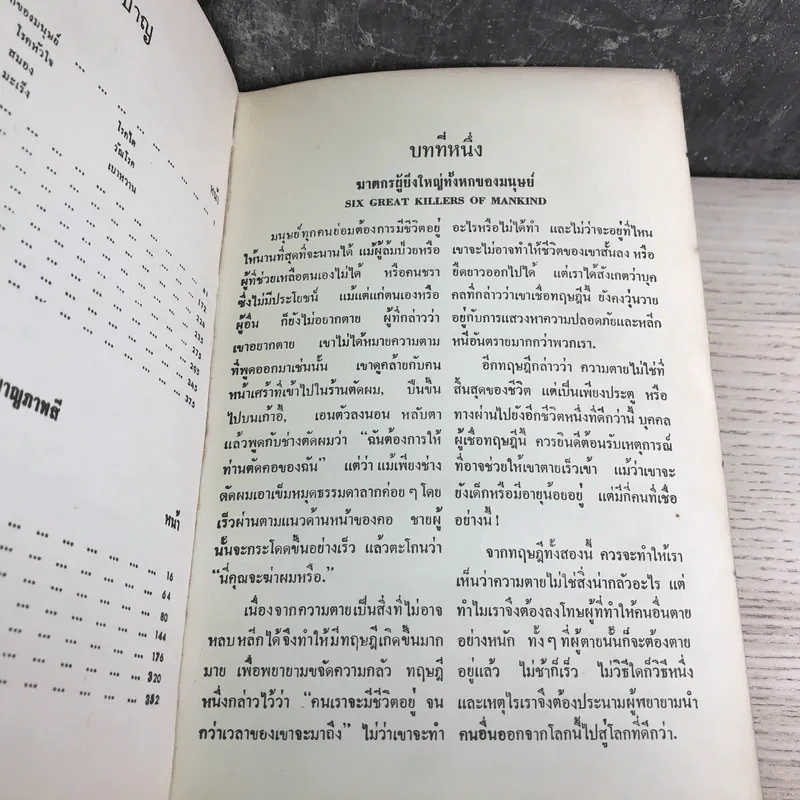 บาญ
ของมนุษย์
โรคหัวใจ
สมอง
มะเร็ง
โรคไต
วัณโรค
เบาหวาน
หน้า
๑
61
172
345
375
บาญภาพสี
หน้า
16
64
80
144
176
320
352
บทที่หนึ่ง
ฆาตกรผู้ยิ่งใหญ่ทั้งหกของมนุษย์
SIX GREAT KILLERS OF MANKIND
มนุษย์ทุกคนย่อมต้องการมีชีวิตอยู่
ให้นานที่สุดที่จะนานได้ แม้ผู้ล้มป่วยหรือ
ผู้ที่ช่วยเหลือตนเองไม่ได้ หรือคนชรา
ซึ่งไม่มีประโยชน์ แม้แต่แก่ตนเองหรือ
ผู้อื่น ก็ยังไม่อยากตาย ผู้ที่กล่าวว่า
เขาอยากตาย เขาไม่ได้หมายความตาม
ที่พูดออกมาเช่นนั้น เขาดูคล้ายกับคน
หน้าเศร้าที่เข้าไปในร้านตัดผม, ปีนขึ้น
ไปบนเก้าอี้, เอนตัวลงนอน หลับตา
แล้วพูดกับช่างตัดผมว่า “ฉันต้องการให้
ท่านตัดคอของฉัน” แต่ว่า แม้เพียงช่าง
ตัดผมเอาเข็มหมุดธรรมดาลากค่อย ๆ โดย
เร็วผ่านตามแนวด้านหน้าของคอ ชายผู้
นั้นจะกระโดดขึ้นอย่างเร็ว แล้วตะโกนว่า
“นี่คุณจะฆ่าผมหรือ.”
เนื่องจากความตายเป็นสิ่งที่ไม่อาจ
หลบหลีกได้จึงทำให้มีทฤษฎีเกิดขึ้นมาก
มาย เพื่อพยายามขจัดความกลัว ทฤษฎี
หนึ่งกล่าวไว้ว่า “คนเราจะมีชีวิตอยู่ จน
กว่าเวลาของเขาจะมาถึง” ไม่ว่าเขาจะทำ
อะไรหรือไม่ได้ทำ และไม่ว่าจะอยู่ที่ไหน
เขาจะไม่อาจทำให้ชีวิตของเขาสั้นลง หรือ
ยืดยาวออกไปได้ แต่เราได้สังเกตว่าบุค
คลที่กล่าวว่าเขาเชื่อทฤษฎีนี้ ยังคงวุ่นวาย
อยู่กับการแสวงหาความปลอดภัยและหลีก
หนีอันตรายมากกว่าพวกเรา.
อีกทฤษฎีกล่าวว่า ความตายไม่ใช่ที่
สิ้นสุดของชีวิต แต่เป็นเพียงประตู หรือ
ทางผ่านไปยังอีกชีวิตหนึ่งที่ดีกว่านี้ บุคคล
ผู้เชื่อทฤษฎีนี้ ควรยินดีต้อนรับเหตุการณ์
ที่อาจช่วยให้เขาตายเร็วเข้า แม้ว่าเขาจะ
ยังเด็กหรือมีอายุน้อยอยู่ แต่มีกี่คนที่เชื่อ
อย่างนี้!
จากทฤษฎีทั้งสองนี้ ควรจะทำให้เรา
เห็นว่าความตายไม่ใช่สิ่งน่ากลัวอะไร แต่
ทำไมเราจึงต้องลงโทษผู้ที่ทำให้คนอื่นตาย
อย่างหนัก ทั้ง ๆ ที่ผู้ตายนั้นก็จะต้องตาย
อยู่แล้ว ไม่ช้าก็เร็ว ไม่วิธีใดก็วิธีหนึ่ง
และเหตุไรเราจึงต้องประนามผู้พยายามนำ
คนอื่นออกจากโลกนี้ไปสู่โลกที่ดีกว่า.